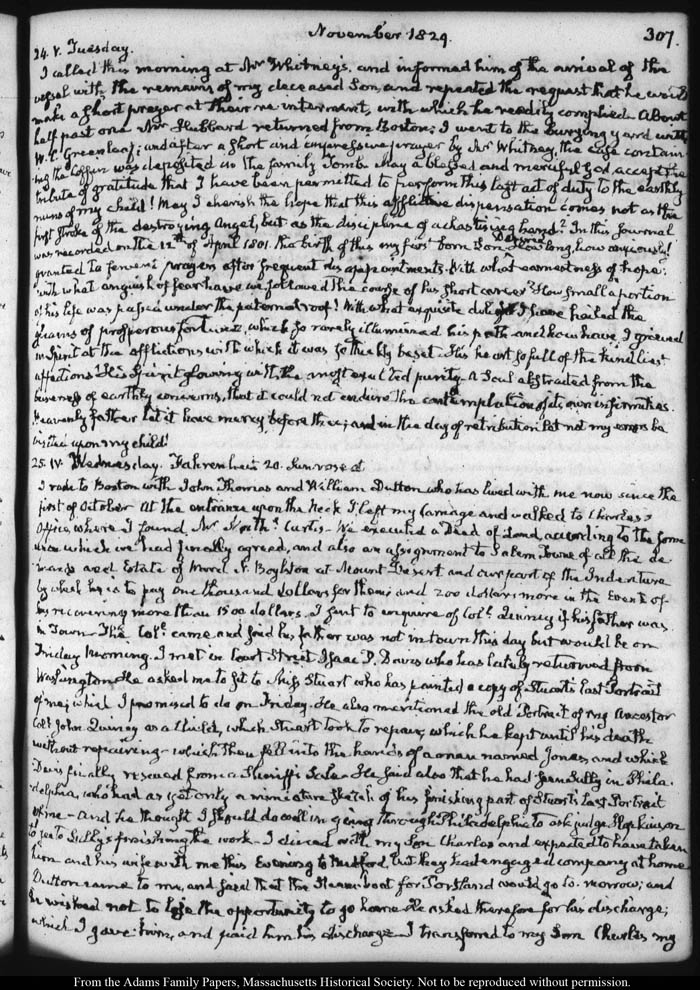 November 1829.
307.
24. V. Tuesday.
I called this morning at Mr Whitney's, and informed him of the arrival of the
vessel with the remains of my deceased Son, and repeated the request that he would
make a short prayer at their re interment, with which he readily complied. About
half past one Mr Hubbard returned from Boston; I went to the burying yard with
W. C. Greenleaf; and after a short and impressive prayer by Mr Whitney, the case contain-
ing the Coffin was deposited in the family Tomb. May a blessed and merciful God, accept the
tribute of gratitude that I have been permitted to perform this last act of duty to the earthly
ruins of my child! May I cherish the hope that this afflictive dispensation comes not as the
first stroke of the destroying Angel, but as the discipline of a chastising hand? In this Journal
was recorded on the 12th of April 1801. the birth of this my first born Son. How long, how anxiously
desired
granted to fervent prayers after frequent disappointments. With what earnestness of hope;
with what anguish of fear have we followed the course of his short career? How small a portion
of his life was passed under the paternal roof! With what exquisite delight I have hailed the
gleams of prosperous fortune, which so rarely illumined his path and how have I grieved
in Spirit at the afflictions with which it was so thickly beset. His heart so full of the kindliest
affections! His Spirit glowing with the most exalted purity. A Soul abstracted from the
baseness of earthly concerns, that it could not endure the contemplation of its own infirmities.
Heavenly father let it have mercy before thee; and in the day of retribution let not my errors be
visited upon my child!
25. IV. Wednesday. Fahrenheit 20. Sun rose at
I rode to Boston with John, Thomas and William Dutton who has lived with me now since the
first of October. At the entrance upon the Neck I left my Carriage and walked to Charles's
Office, where I found Mr Nathl Curtis. We executed a Deed of Land, according to the
which we had finally agreed, and also an assignment to Salem Towne of all the de-
mands and Estate of Ward N. Boylston at Mount Desert and our part of the Indenture
by which he is to pay one thousand dollars for them; and 200 dollars more in the Event of
his recovering more than 1500 dollars. I sent to enquire of Coll. Quincy if his father was
in Town. The Coll. came and said his father was not in town this day but would be on
Friday Morning. I met in Court Street Isaac P. Davis who has lately returned from
Washington. He asked me to sit to Miss Stuart who has painted a copy of Stuart's last Portrait
of me; which I promised to do on Friday. He also mentioned the old Portrait of my Ancestor
Coll. John Quincy as a Child, which Stuart took to repair, which he kept until his death
without repairing—which then fell into the hands of a man named Jones, and which
Davis finally rescued from a Sheriff's Sale. He said also that he had seen Sully in Phila-
delphia, who had as yet only a miniature sketch of his finishing part of Stuart's last Portrait
of me—and he thought I should do well in going through Philadelphia to ask judge Hopkinson
to see to Sully's finishing the work. I dined with my Son Charles and expected to have taken
him and his wife with me this Evening to Medford, but they had engaged company at home
Dutton came to me, and said that the Steam boat for Portland would go to-morrow; and
he wished not to lose the opportunity to go home. He asked therefore for his discharge;
which I gave him, and paid him his discharge. I transferred to my Son Charles my
From the Adams Family Papers, Massachusetts Historical Society. Not to be reproduced without permission.